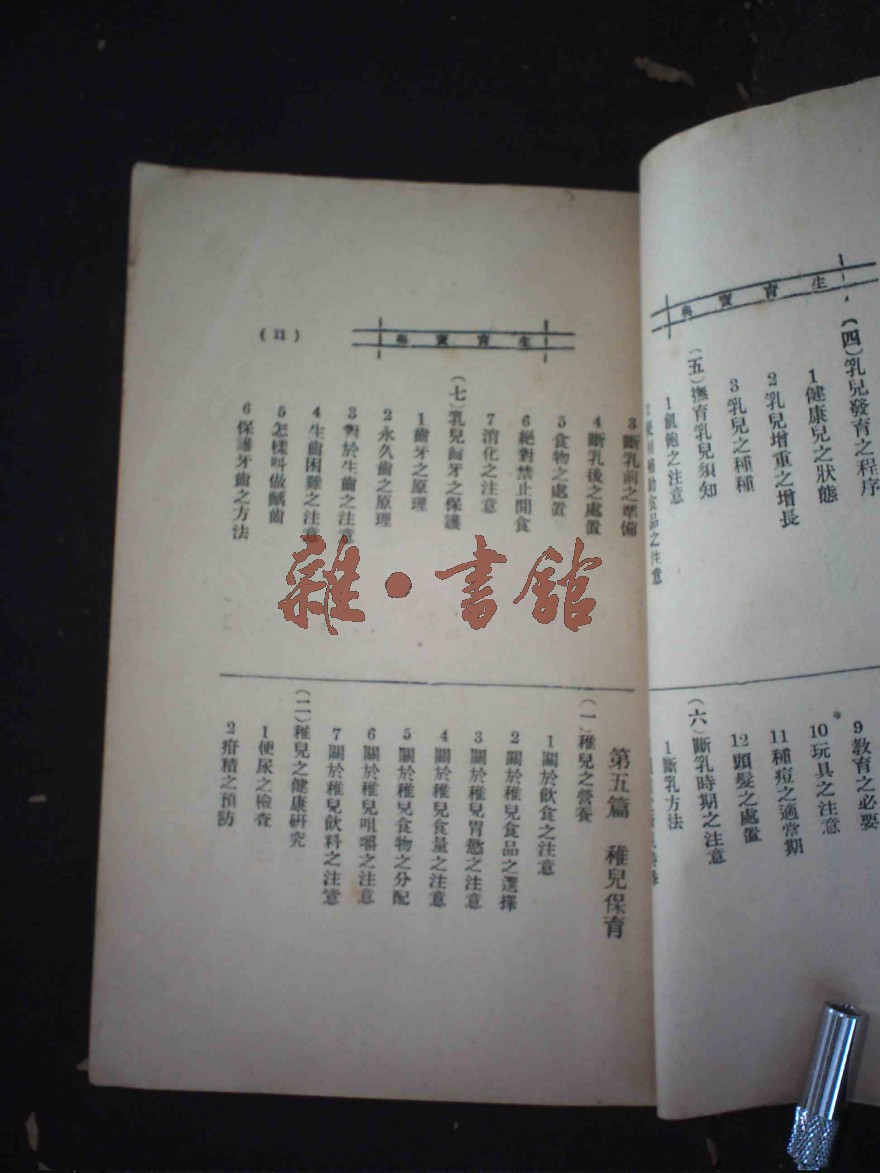 生育寶典
(四)乳兒發育之程序
1健康兒之狀態
2乳兒增重之增長
3乳兒之種種
(五)撫育乳兒須知
1飢飽之注意
9教育之必要
10玩具之注意
11種痘之適當期
12頭髮之處置
(六)斷乳時期之注意
1斷乳方法
生育寶典
3斷乳前之準備
4斷乳後之處置
5食物之處置
6絕對禁止開食
7消化之注意
(七)乳兒齒牙之保護
1齒牙之原理
2永久齒之原理
3對於生齒之注意
4生齒困難之注意
5怎樣叫做齲齒
6保護牙齒之方法
(11)
第五篇 稚兒保育
(一)稚兒之營養
1關於飲食之注意
2關於稚兒食品之選擇
3關於稚兒胃慾之注意
4關於稚兒食量之注意
5關於稚兒食物之分配
6關於稚兒咀嚼之注意
7關於稚兒飲料之注意
(二)稚兒之健康研究
1便尿之檢查
2疳積之預防
雜·書館